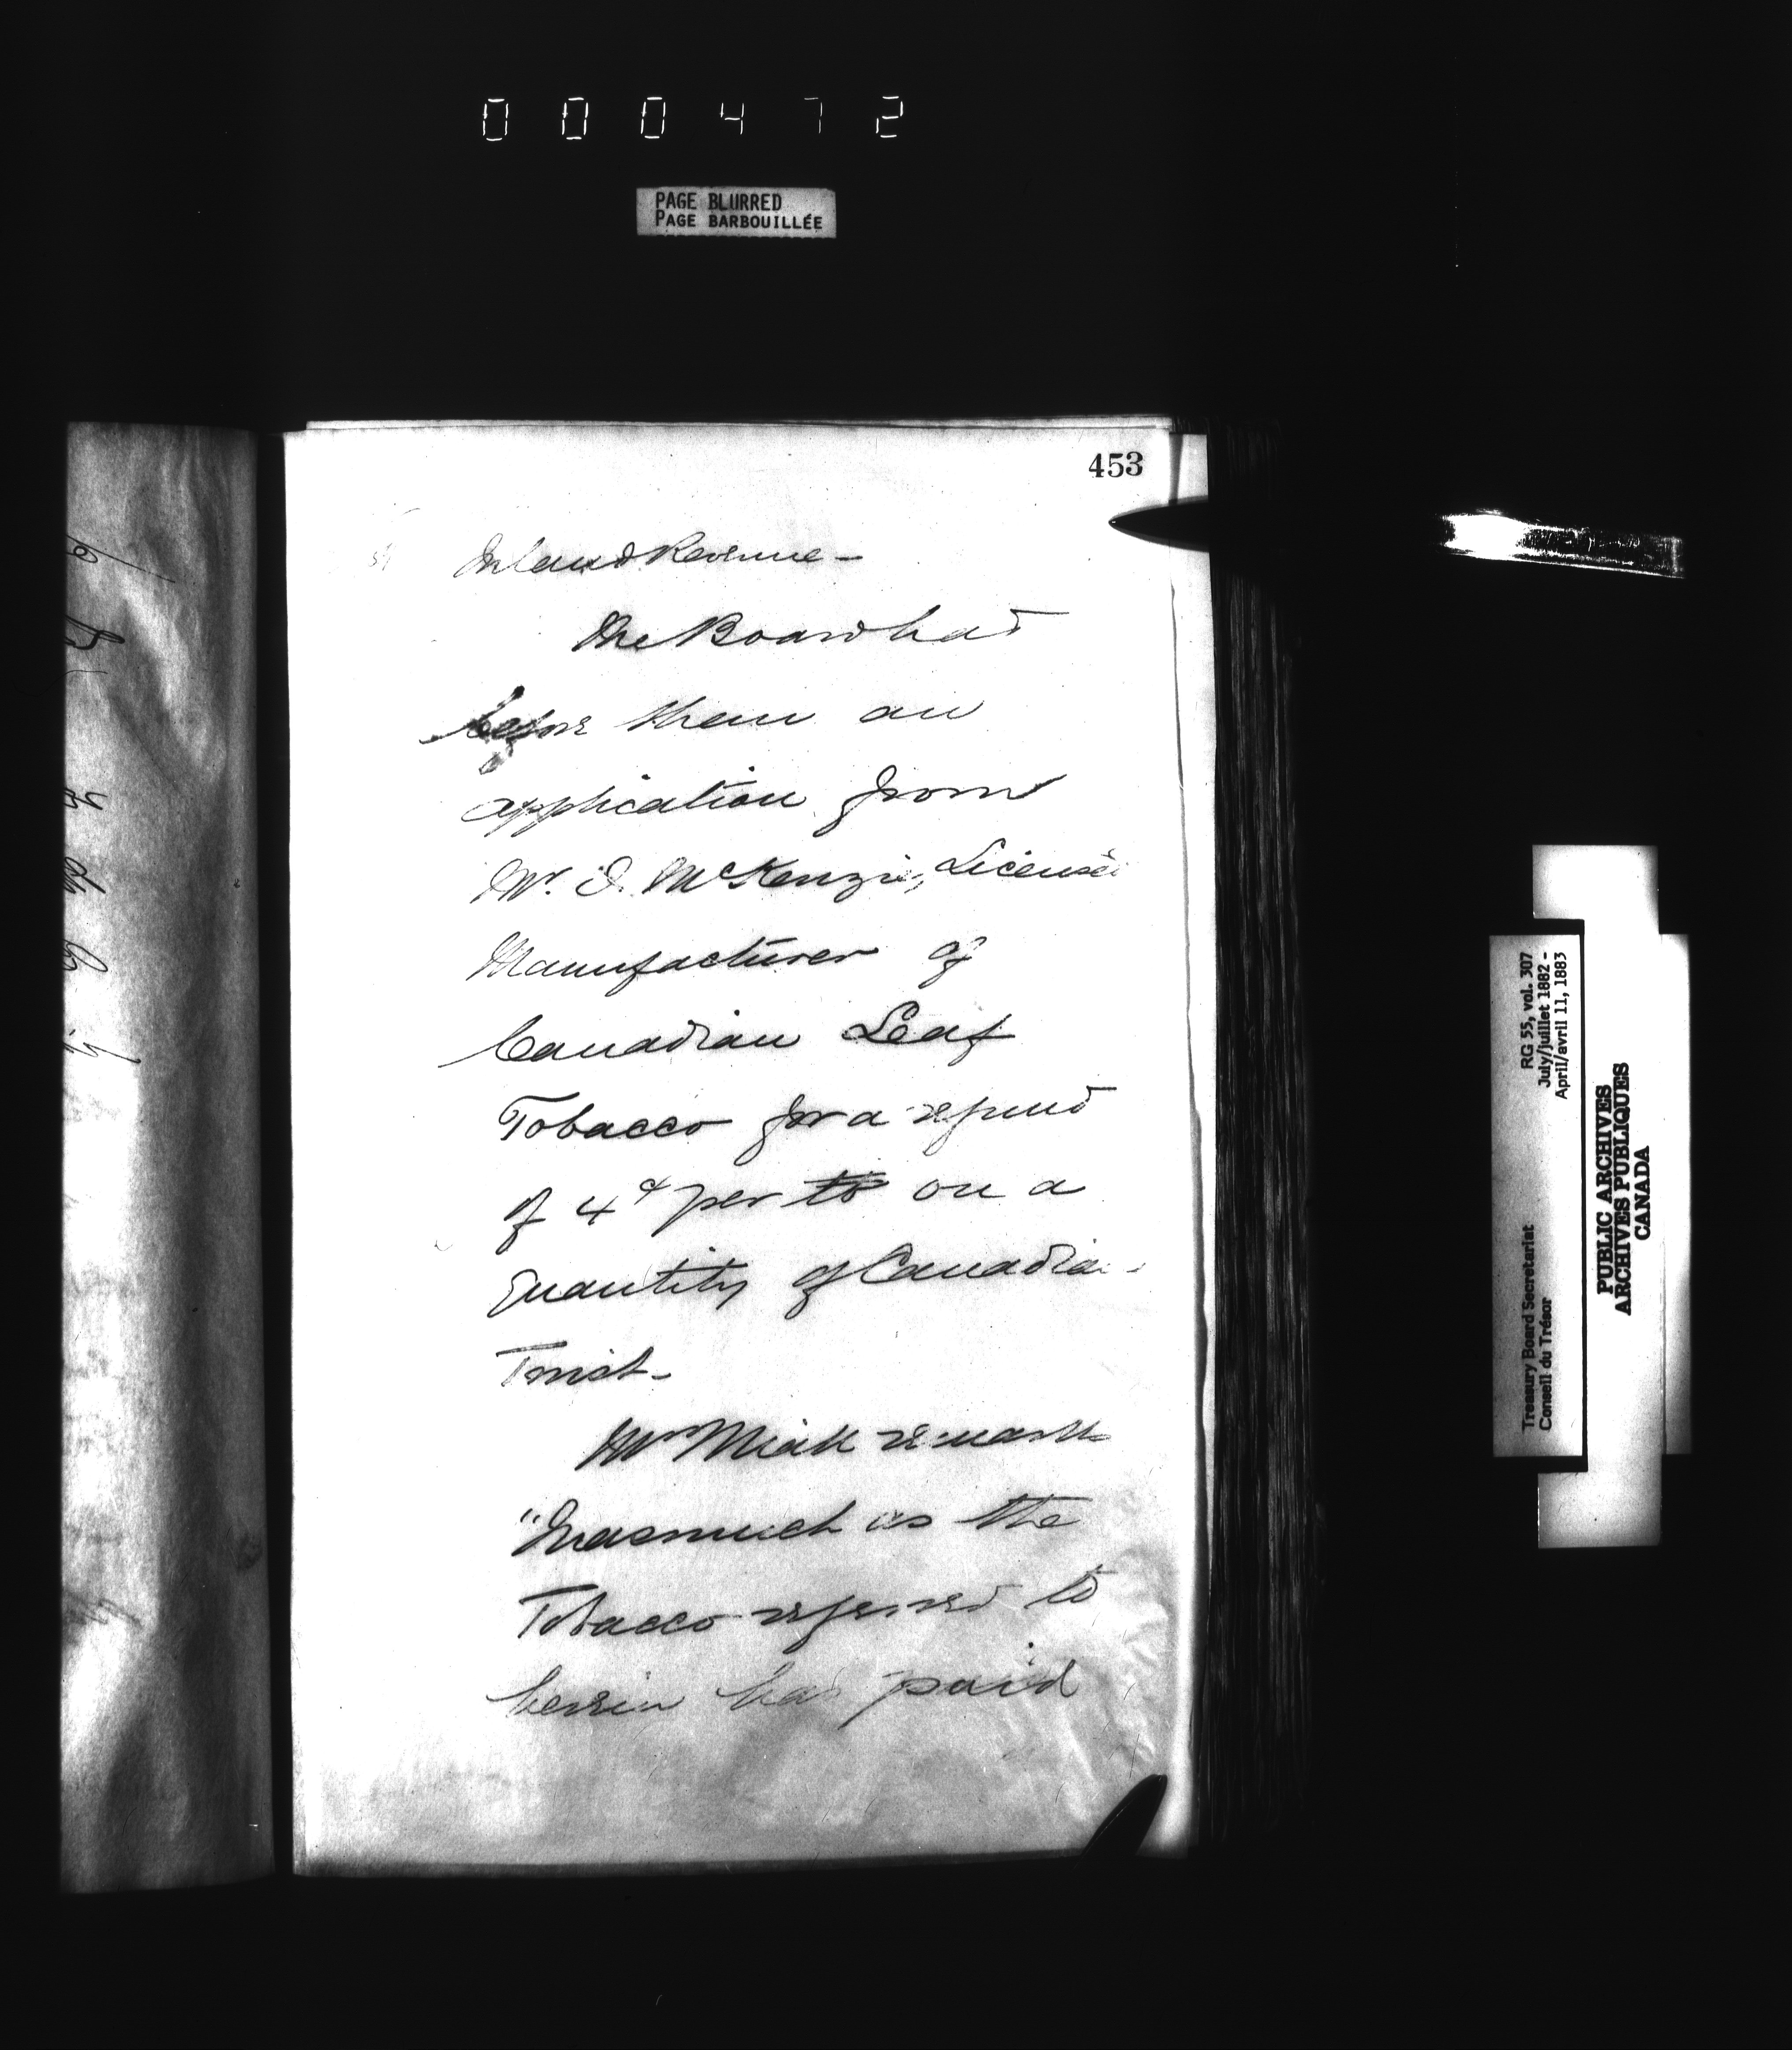 000472
PAGE BLURRED
PAGE BARBOUILLÉE
453
Inland Revenue -
The Board had
before them an
application from
Mr. D. McKenzie, License
Manufacturer of
Canadian Leaf
Tobacco for a refund
of 4 per lb on a
Quantity of Canadian
Twist -
Mr Miall remarks
"Inasmuch as the
Tobacco referred to
herein has paid
RG 55, vol. 307
July/juillet 1882 -
April/avril 11, 1883
Treasury Board Secretariat
Conseil du Trésor
PUBLIC ARCHIVES
ARCHIVES PUBLIQUES
CANADA